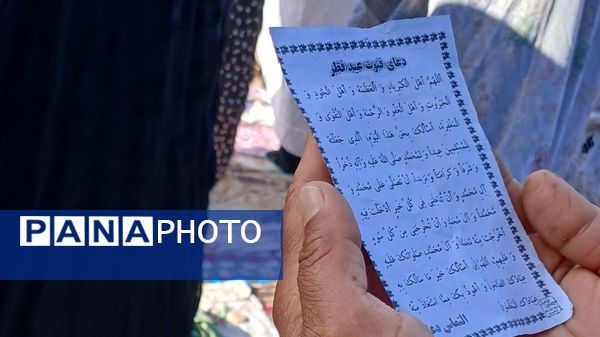 دعای قنوت عید فطر
اللهم اهل الکبریاء و العظمة و اهل الجود و
الجبروت و اهل العفو و الرحمة و اهل التقوی و
المغفرة، اسئلک بحق هذا الیوم، الذی جعلته
للمسلمین عیداً و لمحمد صلی الله علیه و آله ذخراً
و شرفاً و کرامتاً و مزیداً ان تصلی علی محمد و
آل محمد و ان تدخلنی فی کل خیر ادخلت فیه
محمداً و آل محمد و ان تخرجنی من کل سوء
اخرجت منه محمداً و آل محمد، صلواتک علیه
و علیهم، اللهم انی اسئلک خیر ما سئلک به
عبادک الصالحون و اعوذ بک مما استعاذ منه
عبادک
التماس دعا
PANA PHOTO